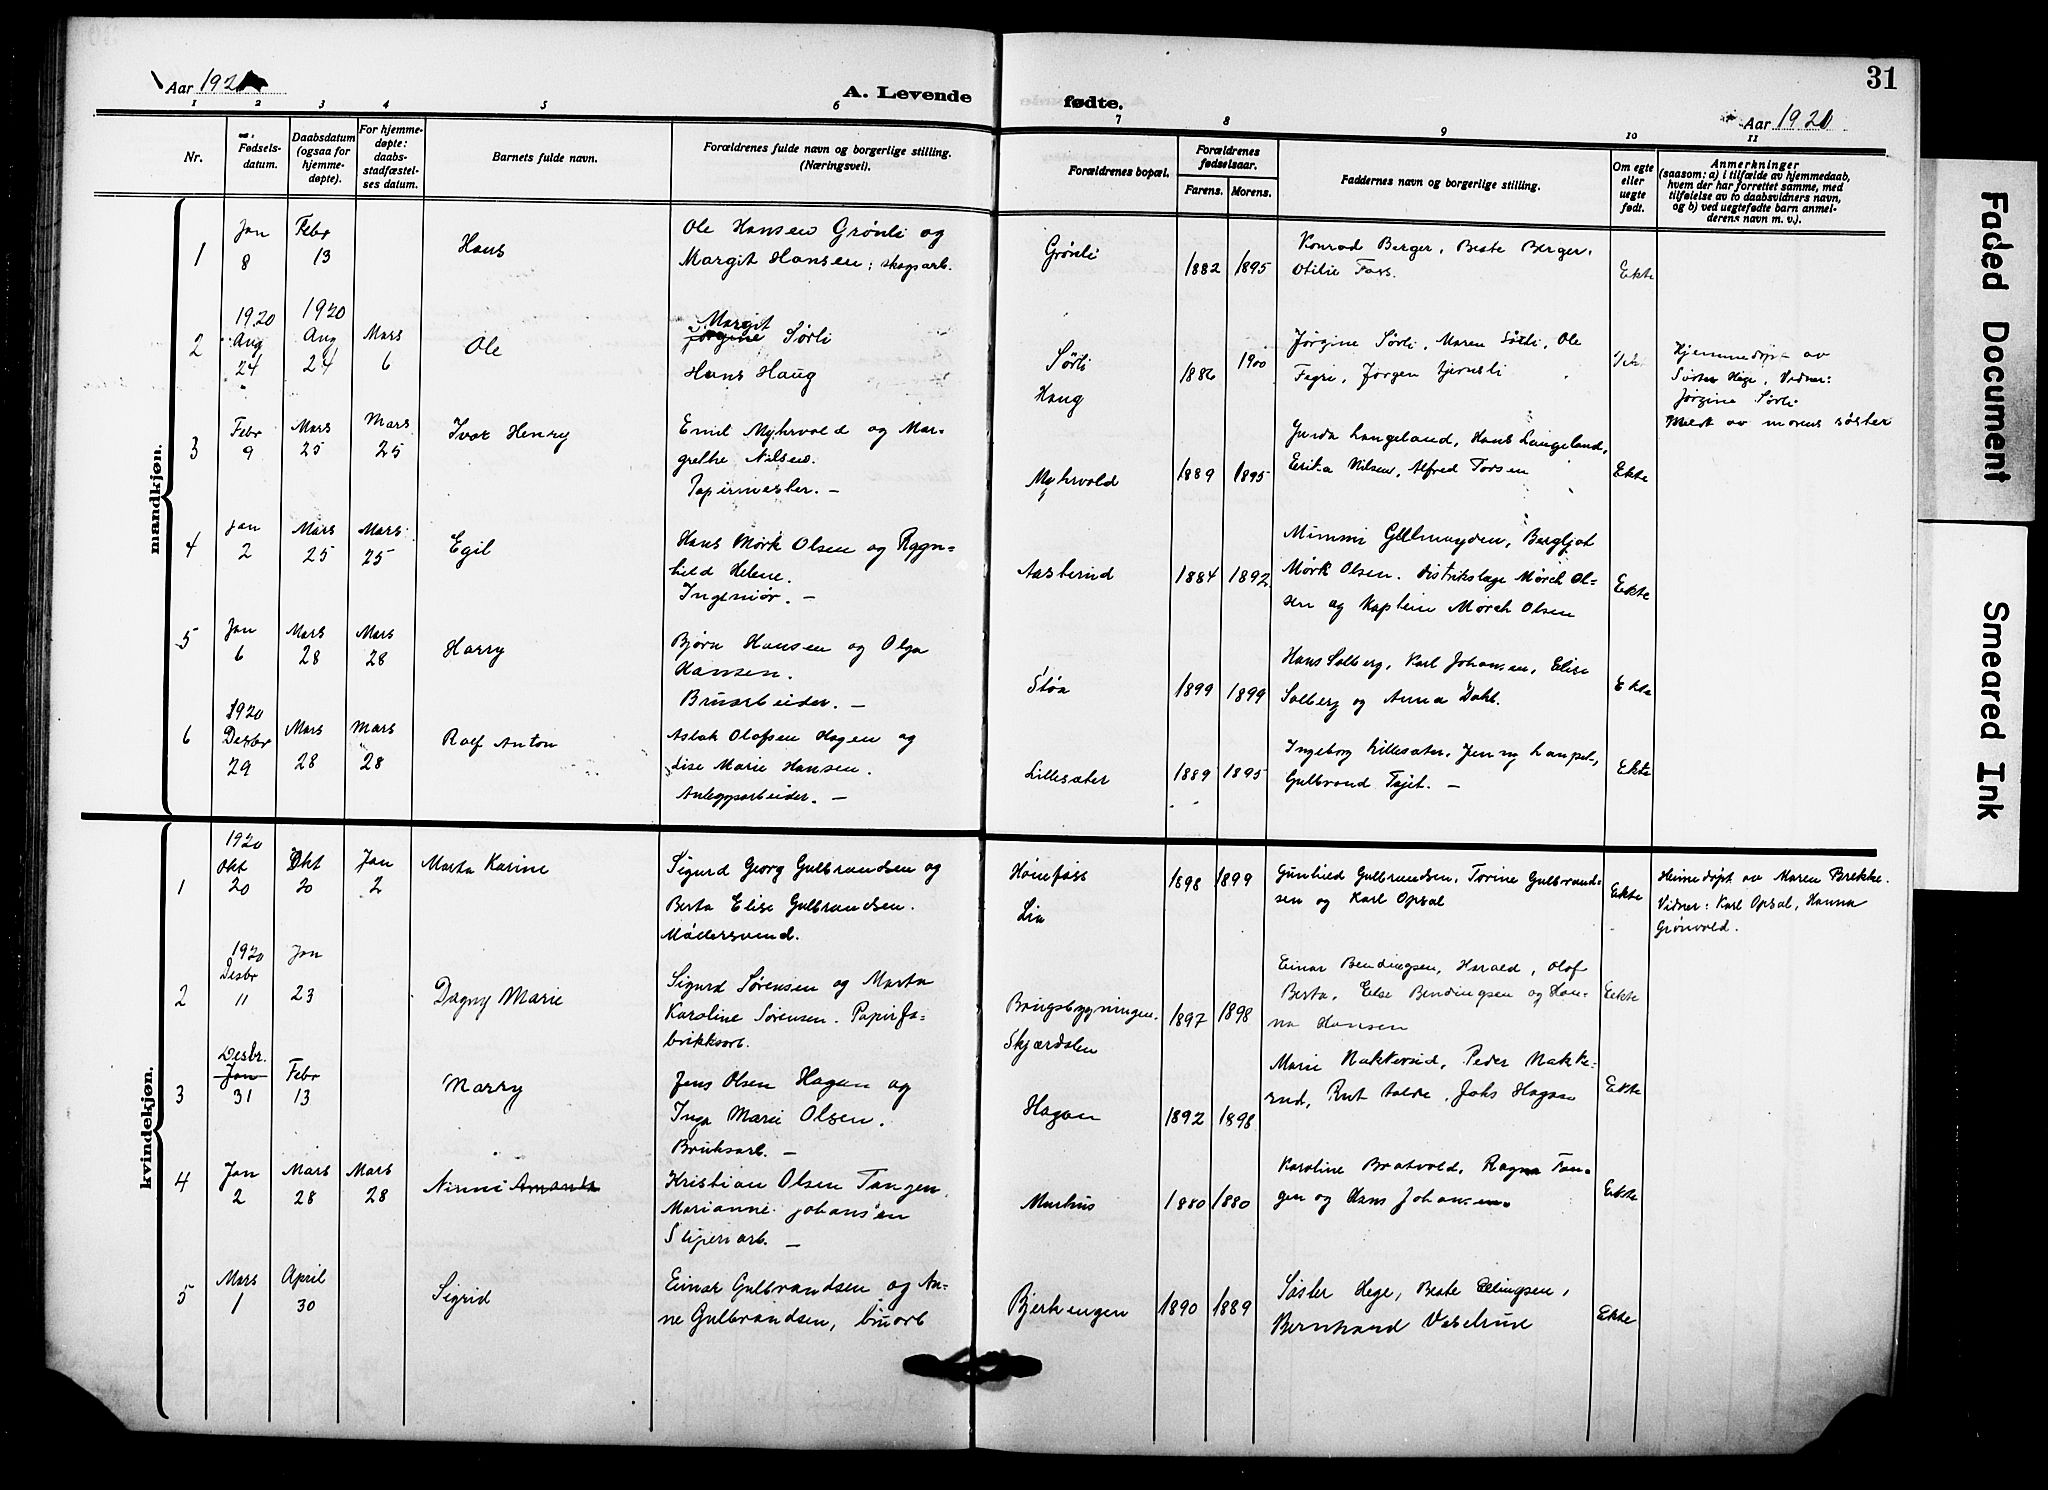 31
Aar 1921
A. Levende fødte.
Aar 1921
1 2 3 4 5 6 7 8 9 10 11
Nr.
Fødsels-
datum.
Daabsdatum
(ogsaa for
hjemme-
døpte).
For hjemme-
døpte:
daabs-
stadfæstel-
ses datum.
Barnets fulde navn.
Forældrenes fulde navn og borgerlige stilling.
(Næringsvei).
Forældrenes bopæl.
Forældrenes
fødselsaar.
Farens. Morens.
Faddernes navn og borgerlige stilling.
Om egte
eller
uegte
født.
Anmerkninger
(saasom: a) i tilfælde av hjemmedaab,
hvem der har forrettet samme, med
tilføielse av to daabsvidners navn,
og b) ved uegtefødte barn anmel-
derens navn m. v.).
mandkjøn.
1
Jan
8
Febr
13
Hans
Ole Hansen Grønli og
Margit Hansen; skogsarb.
Grønli
1882 1895
Konrad Berger, Beate Berger,
Otilie Foss.
Ekte
2
1920
Aug
24
1920
Aug
24
Mars
6
Ole
Margit
Jørgine Sørli
Hans Haug
Sørli
Haug
1886 1900
Jørgine Sørli, Maren Sørli, Ole
Fagri, Jørgen
Hjemmedøpt av
Søster Hege, Vidner:
Jørgine Sørli
Meldt av morens søster
3
Febr
9
Mars
25
Mars
25
Ivar Henry
Emil Myhrvold og Mar-
grethe Nilsen.
Papirmester. —
Myhrvold
1889 1895
Langeland, Hans Langeland,
Erika Nilsen, Alfred Torsen
Ekte
4
Jan
2
Mars
25
Mars
25
Egil
Hans Mørk Olsen og Ragn-
hild Helene.
Ingeniør. —
Aasterud
1884 1892
Mimmi Gjelmuyden, Bergljot
Mørk Olsen. distrikslæge Mørch Ol-
sen og Kaptein Mørch Olsen
Ekte
5
Jan
6
Mars
28
Mars
28
Harry
Bjørn Hansen og Olga
Hansen.
Bruarbeider. —
Støa
1899 1899
Hans Solberg, Karl Johansen, Elise
Solberg og Anna Dahl.
Ekte
6
1920
Desbr
29
Mars
28
Mars
28
Rolf Anton
Aslak Olafsen Hagen og
Lise Marie Hansen.
Anleggsarbeider. —
Lillesæter
1889 1895
Ingeborg Lillesæter, Jenny
Gulbrand —
Ekte
kvindekjøn.
1
1920
Okt
20
Okt
20
Jan
2
Marta Karine
Sigurd Georg Gulbrandsen og
Berta Elise Gulbrandsen.
Møllersvend.
Hønefoss
Lia
1898 1899
Gunhild Gulbrandsen, Torine Gulbrand-
sen og Karl Opsal
Ekte
Heimedøpt av Maren Brekke.
Vidner: Karl Opsal, Hanna
Grønvold.
2
1920
Desbr
11
Jan
23
Dagny Marie
Sigurd Sørensen og Marta
Karoline Sørensen. Papirfa-
brikksarb.
Brugsbygningen.
Skjærdalen
1897 1898
Einar Bendingsen, Harald, Olof
Berta, Else Bendingsen og Han-
na Hansen
Ekte
3
Desbr.
Jan
31
Febr
13
Marry
Jens Olsen Hagen og
Inga Marie Olsen.
Bruksarb. —
Hagan
1892 1898
Marie Nakkerud, Peder Nakke-
rud, Rut Johs Hagan
Ekte
4
Jan
2
Mars
28
Mars
28
Ninni Amanda
Kristian Olsen Tangen,
Marianne Johansen
Sliperiarb. —
Marhus
1880 1880
Karoline Bratvold, Ragna Tan-
gen og Hans Johansen.
Ekte
5
Mars
1
April
30
Sigrid
Einar Gulbrandsen og An-
ne Gulbrandsen, bruarb
Bjerkengen
1890 1889
Søster Hege, Beate Ellingsen,
Bernhard Veselrud
Ekte
Faded Document
Smeared Ink